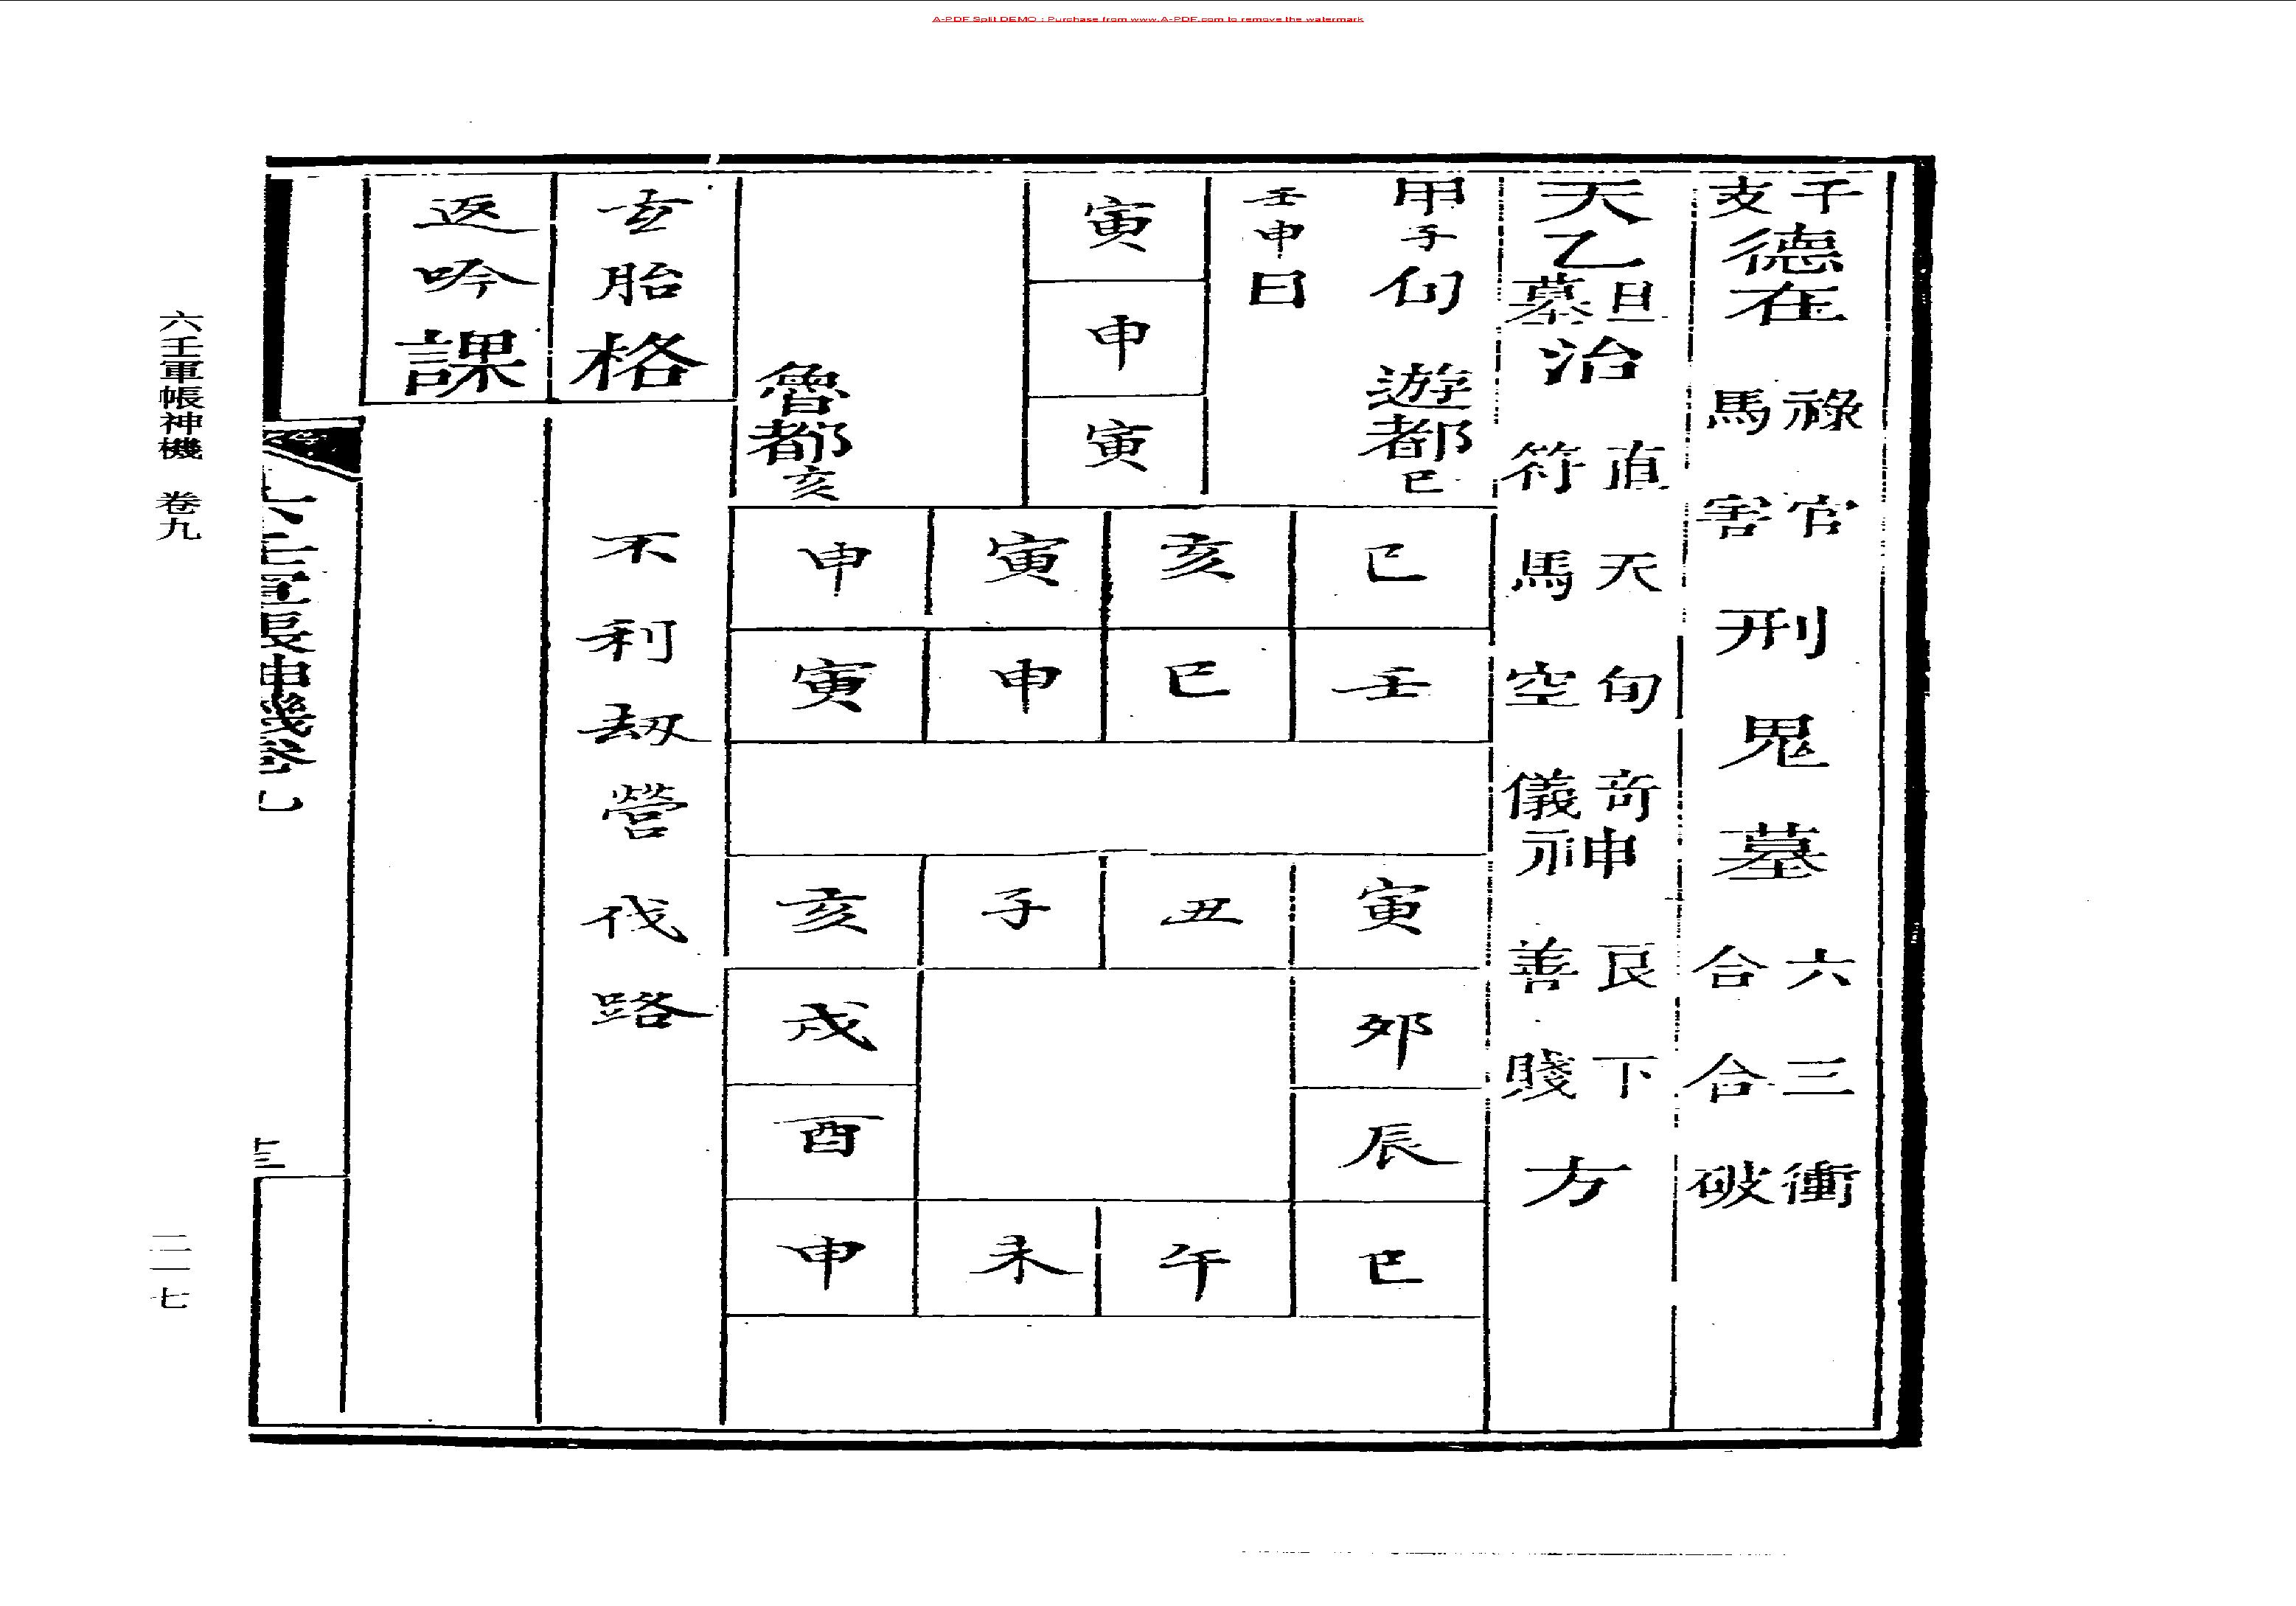 A-PDF Split DEMO : Purchase from www.A-PDF.com to remove the watermark
干支德在 祿馬 官害 刑 鬼 墓 六合 三合 衝破
天乙旦墓治 直符 天馬 旬空 奇儀神 良善 下賤 方
甲子旬 遊都巳
壬申日
寅
申
寅
魯都亥
巳 亥 寅 申
壬 巳 申 寅
寅 丑 子 亥
卯 戌
辰 酉
巳 午 未 申
玄胎格
不利刼營伐路
返吟課
六壬軍帳神機 卷九
二一七